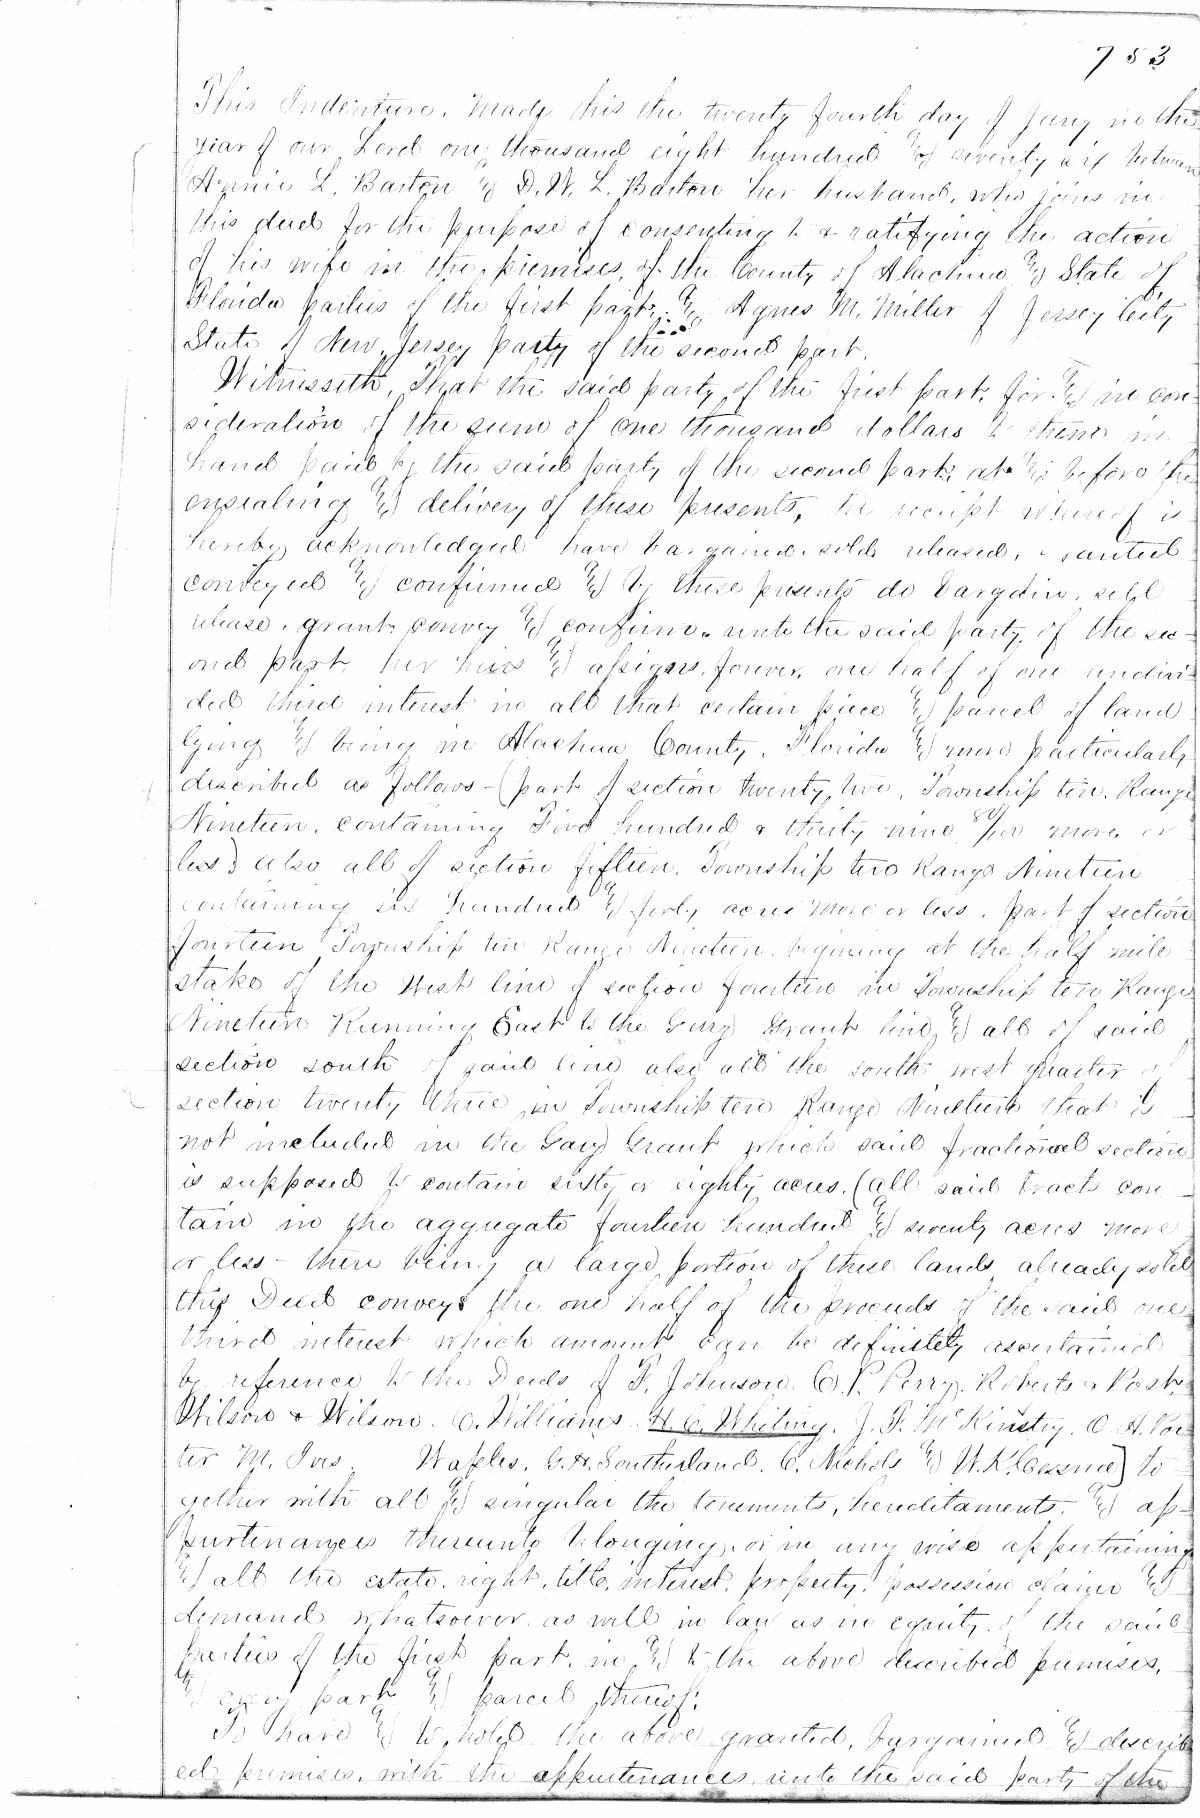 753
This Indenture, Made this the twenty fourth day of Jany in the
year of our Lord one thousand eight hundred & seventy six between
Annie L. Barton & D. W. L. Barton her husband, who joins in
this deed for the purpose of consenting to & ratifying the action
of his wife in the premises, of the County of Alachua & State of
Florida parties of the first part, & Agnes M. Miller of Jersey City
State of New Jersey party of the second part.
Witnesseth, That the said party of the first part, for & in con-
sideration of the sum of one thousand dollars to them in
hand paid by the said party of the second part, at & before the
ensealing & delivery of these presents, the receipt whereof is
hereby acknowledged have bargained, sold, released, granted
conveyed & confirmed & by these presents do bargain, sell
release, grant, convey & confirm, unto the said party of the sec-
ond part, her heirs & assigns, forever, one half of one undivi-
ded third interest in all that certain piece & parcel of land
lying & being in Alachua County, Florida & more particularly
described as follows - (part of section twenty two, Township ten, Range
Nineteen, containing Five hundred & thirty nine /100 more or
less) also all of section fifteen, Township ten Range Nineteen
containing six hundred & forty acres more or less, part of section
fourteen Township ten Range Nineteen, begining at the half mile
stake of the West line of section fourteen in Township ten Range
Nineteen Running East to the Gary Grant line, & all of said
section south of said line also all the south west quarter of
section twenty three in Township ten Range Nineteen that is
not included in the Gary Grant which said fractional section
is supposed to contain sixty or eighty acres. (all said tracts con-
tain in the aggregate fourteen hundred & seventy acres more
or less - there being a large portion of these lands already sold
this Deed conveys the one half of the proceeds of the said one
third interest which amount can be definitely ascertained
by reference to the Deeds of F. Johnson, O. P. Perry, Roberts & Post,
Wilson & Wilson, C. Williams, H. C. Whiting, J. F. McKinstry, O. A. Por-
ter M. Ivis, Waples, G. H. Southerland, C. Nichols & W. K. Cessna] to-
gether with all & singular the tenements, hereditaments, & ap-
purtenances thereunto belonging, or in any wise appertaining
& all the estate, right, title, interest, property, possession claim &
demand whatsoever, as well in law as in equity, of the said
parties of the first part, in & to the above described premises,
& every part & parcel thereof:
To have & to hold the above granted, bargained & describ-
ed premises, with the appurtenances, unto the said party of the